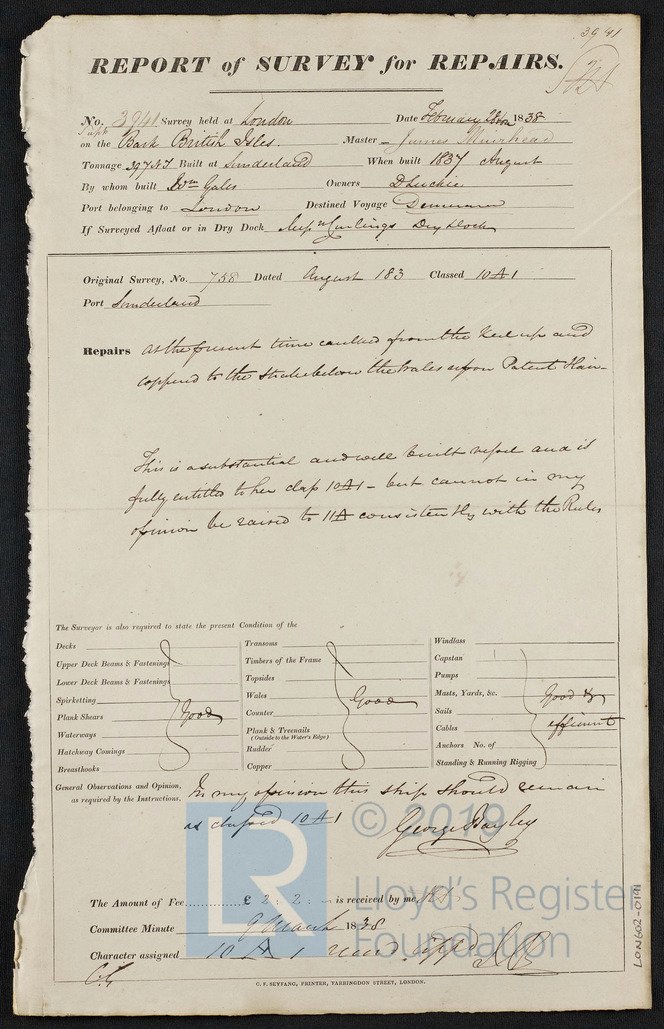 3941
REPORT of SURVEY for REPAIRS.
No. 3941 Survey held at London Date February 1838
on the Bark British Isles. Master James Muirhead
Tonnage 397 NT Built at Sunderland When built 1837 August
By whom built Wm Gales Owners D Luckie
Port belonging to London Destined Voyage Demerara
If Surveyed Afloat or in Dry Dock Curlings Dry Dock
Original Survey, No. 758 Dated August 183 Classed 10 A 1
Port Sunderland
Repairs at the present time caulked from the Keel up and
coppered to the Strake below the Wales upon Patent Hair
This is a substantial and well built vessel and is
fully entitled to her class 10 A 1 - but cannot in my
opinion be raised to 11 A consistently with the Rules
The Surveyor is also required to state the present Condition of the
Decks
Upper Deck Beams & Fastenings
Lower Deck Beams & Fastenings
Spirketting
Plank Shears
Waterways
Hatchway Comings
Breasthooks
Good
Transoms
Timbers of the Frame
Topsides
Wales
Counter
Plank & Treenails
(Outside to the Water's Edge)
Rudder
Copper
Good
Windlass
Capstan
Pumps
Masts, Yards, &c.
Sails
Cables
Anchors No. of
Standing & Running Rigging
Good &
efficient
General Observations and Opinion, In my opinion this ship should remain
as required by the Instructions, as classed 10 A 1
George Bayley
The Amount of Fee............£ 2 : 2 : - is received by me,
Committee Minute 9 March 1838
Character assigned 10 A 1
C. F. SEYFANG, PRINTER, FARRINGDON STREET, LONDON.
LON602-0191
LR
© 2019
Lloyd's Register
Foundation